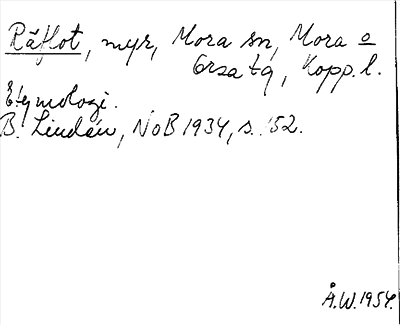 Råflot, myr, Mora sn, Mora o
Orsa tg, Kopp. l.
Etymologi.
B. Lindén, NoB 1934, s. 152.
Å.W. 1954.